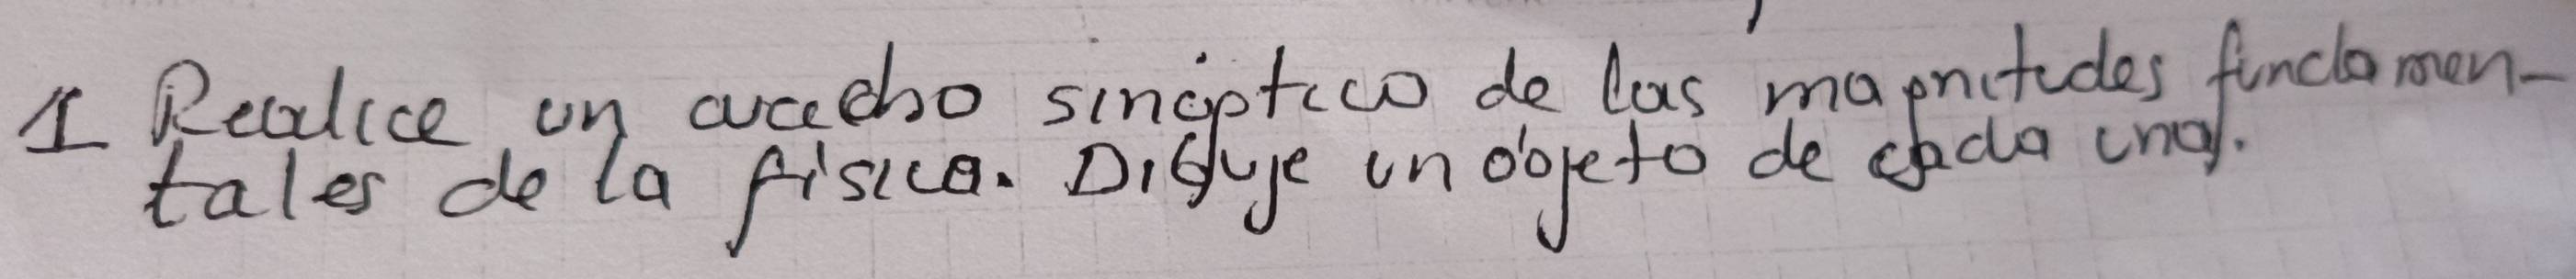 1 Realice un cuadro sinóptico de las magnitudes fundamen-
tales de la física. Dibuje un objeto de cada una.